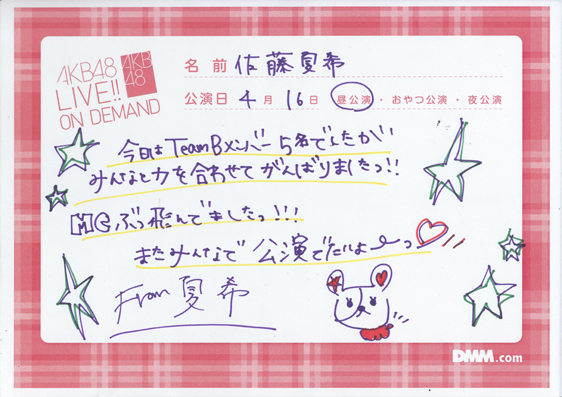 AKB48
LIVE!!
ON DEMAND
AKB
48
名前 佐藤夏希
公演日 4月 16日 昼公演・おやつ公演・夜公演
今日はTeamBメンバー5名でしたが
みんなと力を合わせてがんばりましたっ!!
MCぶっ飛んでましたっ!!!
またみんなで公演でだいよーっ
From 夏希
DMM.com